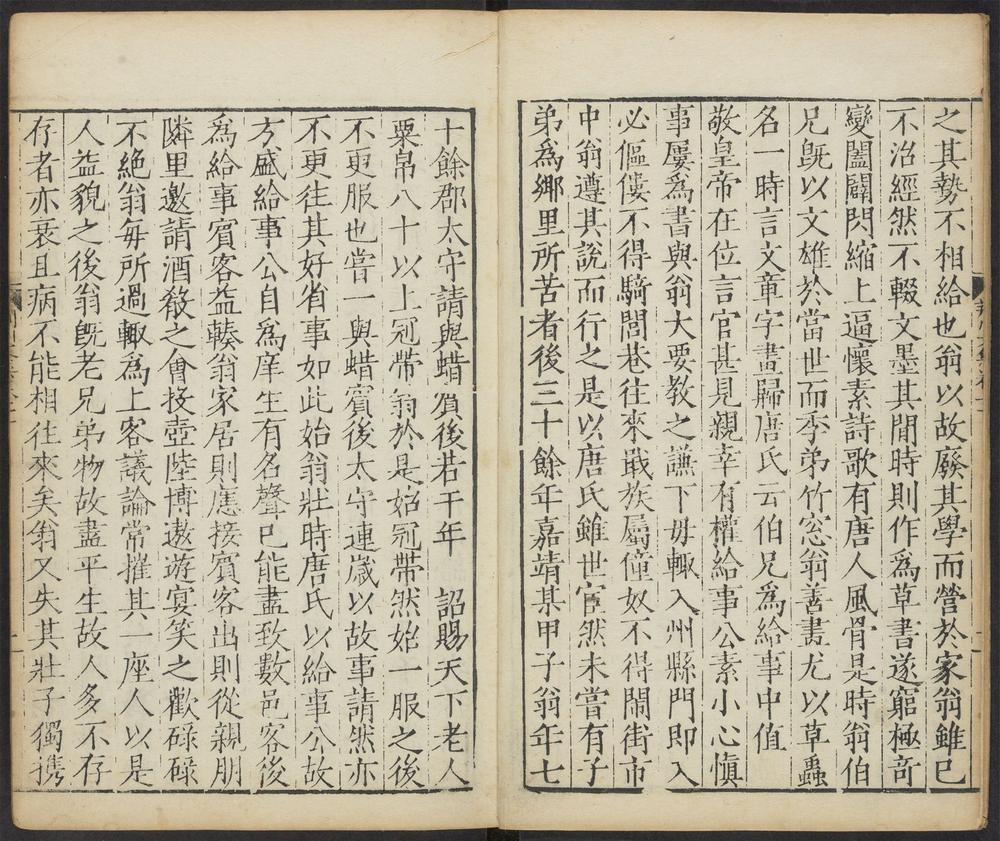 之其勢不相給也翁以故廢其學而營於家翁雖已
不治經然不輟文墨其閒時則作爲草書遂窮極奇
變闔闢閃縮上逼懷素詩歌有唐人風骨是時翁伯
兄旣以文雄於當世而季弟竹窓翁善畫尤以草蟲
名一時言文章字畫歸唐氏云伯兄爲給事中值
敬皇帝在位言官甚見親幸有權給事公素小心慎
事屢爲書與翁大要教之謙下毋輙入州縣門即入
必傴僂不得騎閭巷往來戢族屬僮奴不得鬧街市
中翁遵其說而行之是以唐氏雖世官然未嘗有子
弟爲鄉里所苦者後三十餘年嘉靖某甲子翁年七
十餘郡太守請與蜡賔後若干年　詔賜天下老人
粟帛八十以上冠帶翁於是始冠帶然始一服之後
不更服也嘗一與蜡賓後太守連歲以故事請然亦
不更往其好省事如此始翁壯時唐氏以給事公故
方盛給事公自爲庠生有名聲已能盡致數邑客後
爲給事賓客益輳翁家居則應接賓客出則從親朋
隣里邀請酒殽之會投壺陸博遨遊宴笑之歡碌碌
不絶翁每所過輙爲上客議論常摧其一座人以是
人益貌之後翁旣老兄弟物故盡平生故人多不存
存者亦衰且病不能相往來矣翁又失其壯子獨携